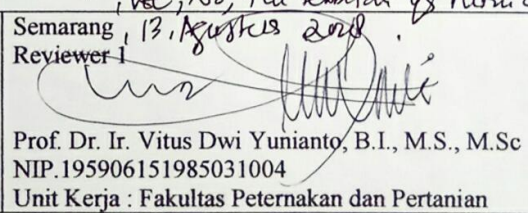 Semarang, 13, Agustus 2018.
Reviewer 1
Prof. Dr. Ir. Vitus Dwi Yunianto, B.I., M.S., M.Sc
NIP.195906151985031004
Unit Kerja : Fakultas Peternakan dan Pertanian